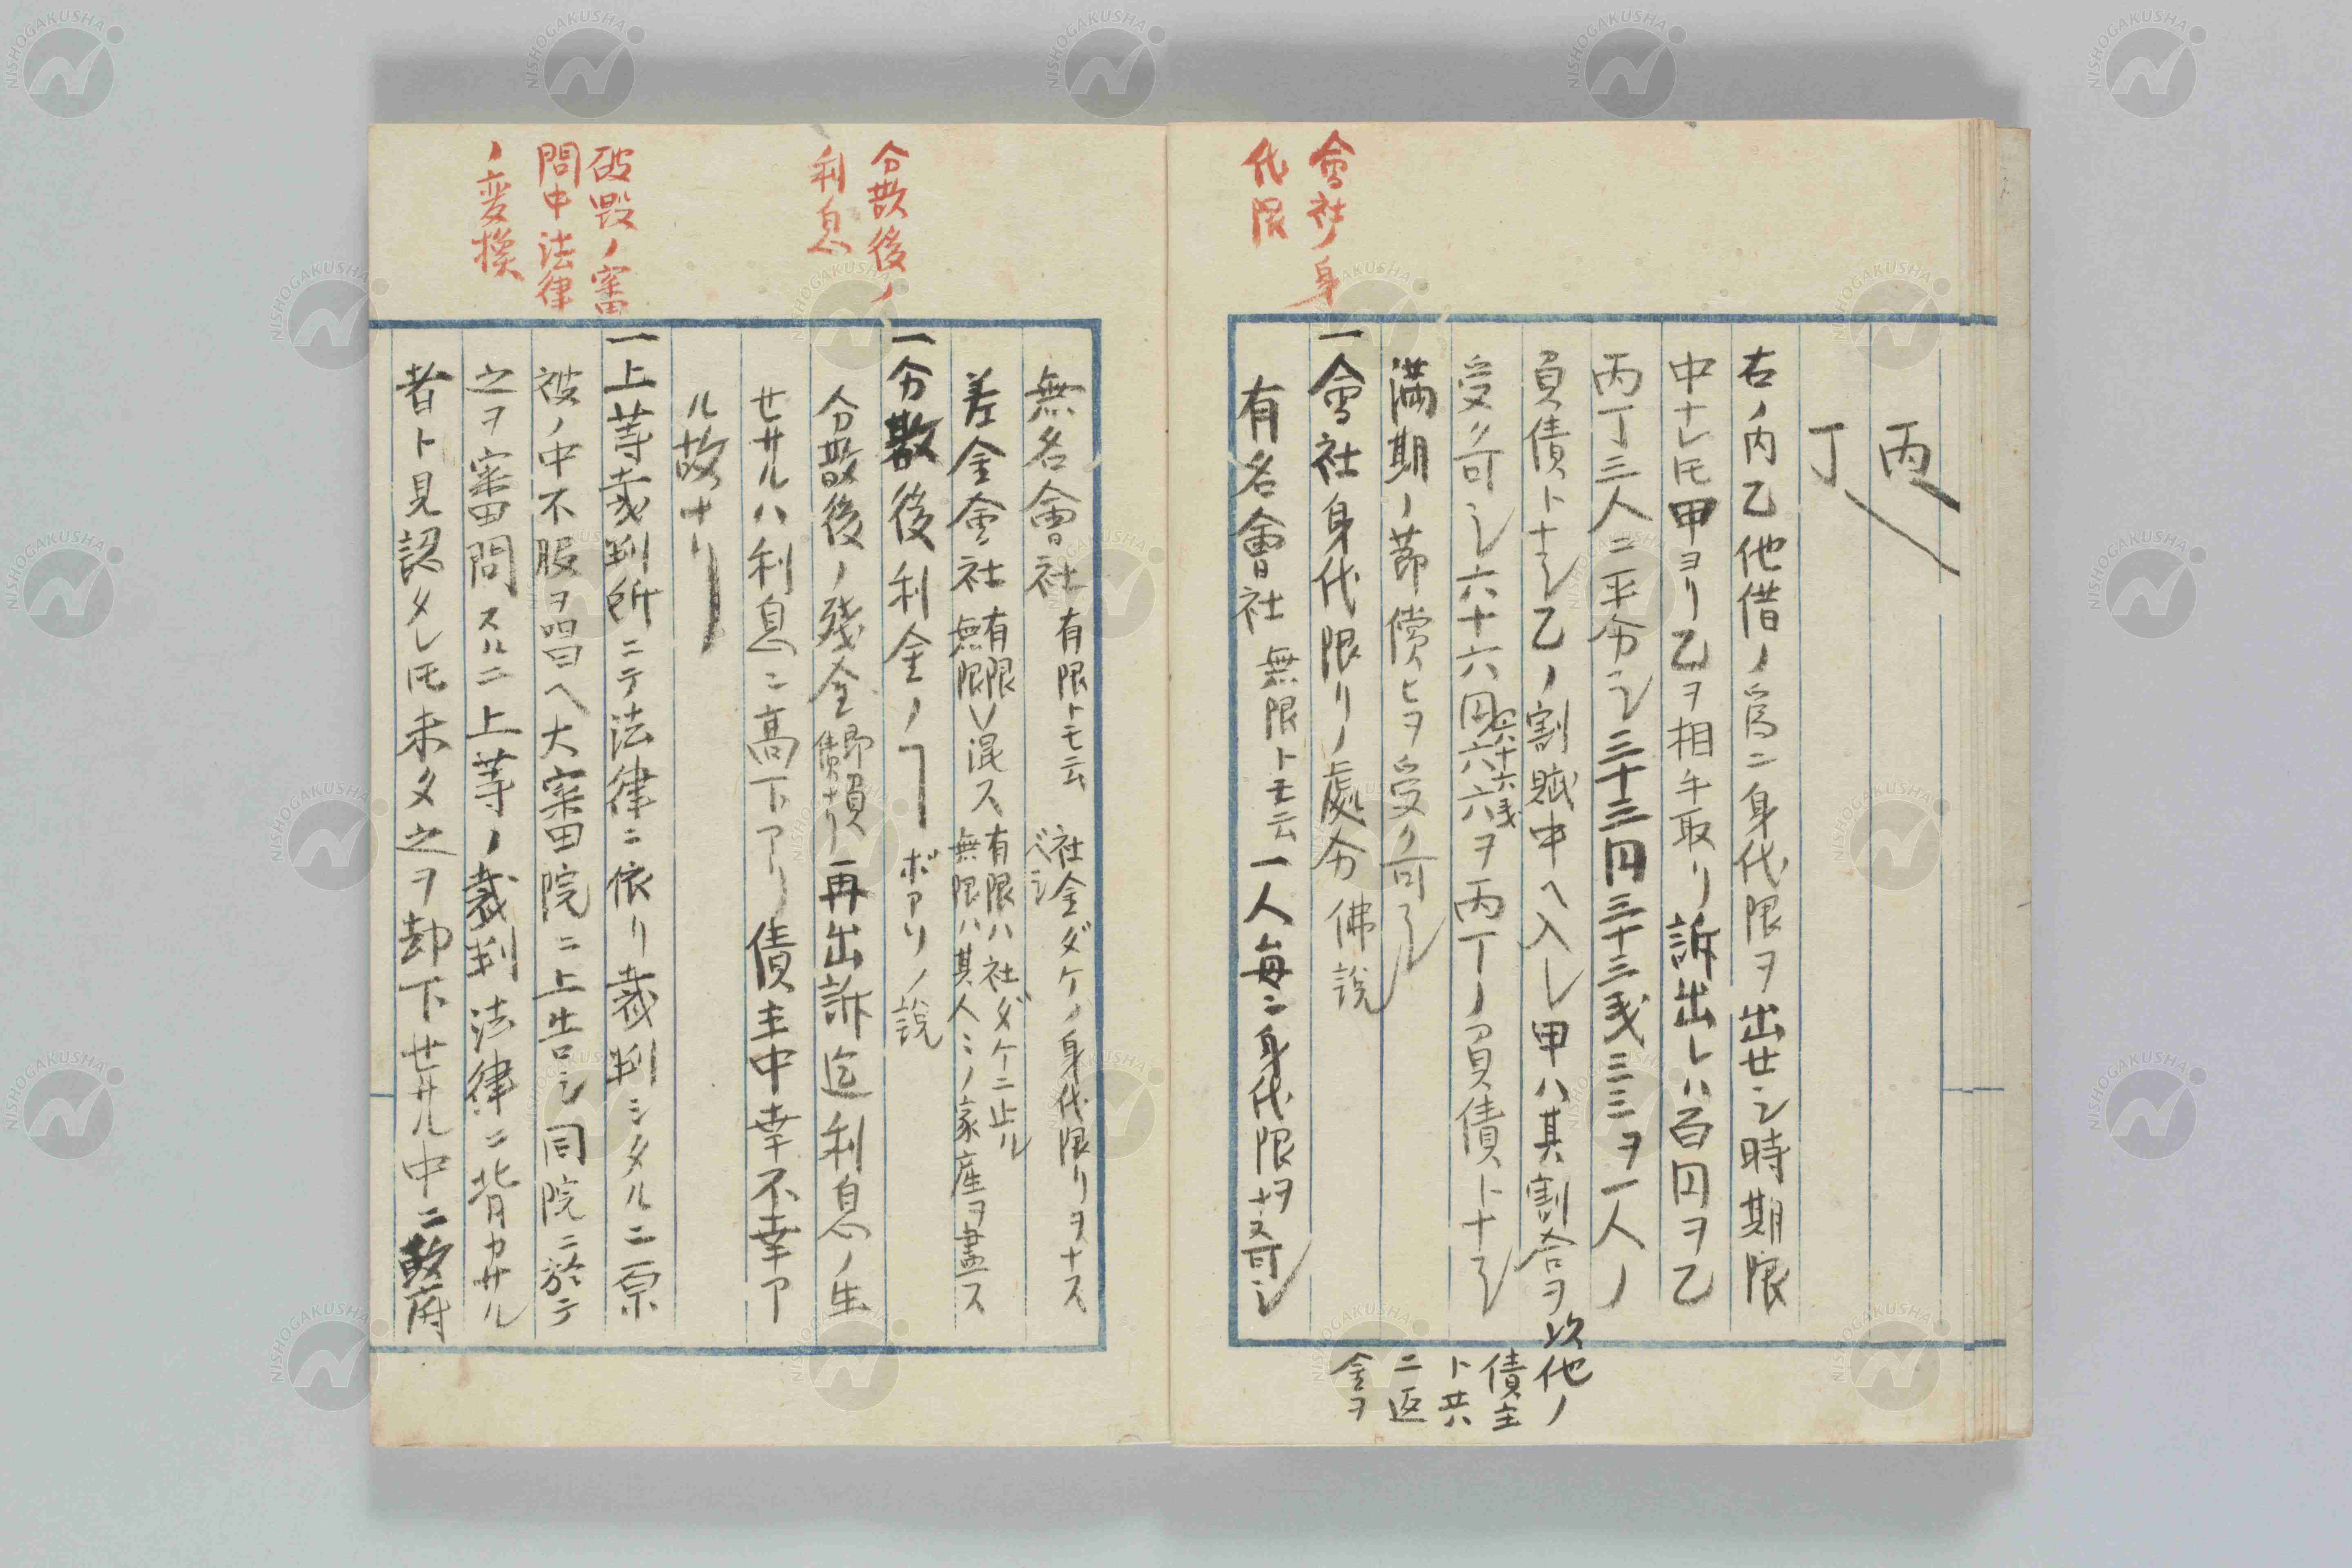 丙
丁
右ノ内乙他借ノ為ニ身代限ヲ出セシ時期限
中ナレ𪜈甲ヨリ乙ヲ相手取リ訴出レハ百円ヲ乙
丙丁三人ニ平分シ三十三円三十三戔三三ヲ一人ノ
負債トナシ乙ノ割賦中ヘ入レ甲ハ其割合ヲ以他ノ
債主
ト共
ニ返
金ヲ
受ク可シ六十六円六十六戔六六ヲ丙丁ノ負債トナシ
満期ノ節償ヒヲ受ク可シ
會社ノ身
代限
一會社身代限リノ處分 佛説
有名會社 無限トモ云 一人毎ニ身代限ヲナス可シ
無名會社 有限トモ云 社金ダケノ身代限リヲナス
ベシ
差金會社 有限
無限 ソ混ス 有限ハ社ダケニ止ル
無限ハ其人ミノ家産ヲ盡ス
分散後ノ
利息
一分散後利金ノヿ ボアソノ説
分散後ノ殘金 即損
債ナリ 再出訴迄利息ノ生
セサルハ利息ニ高下アリ債主中幸不幸ア
ル故ナリ
破毀ノ審
問中法律
ノ変換
一上等裁判所ニテ法律ニ依リ裁判シタルニ原
被ノ中不服ヲ唱ヘ大審院ニ上告シ同院ニ於テ
之ヲ審問スルニ上等ノ裁判法律ニ背カサル
者ト見認メレ𪜈未タ之ヲ却下セサル中ニ政府